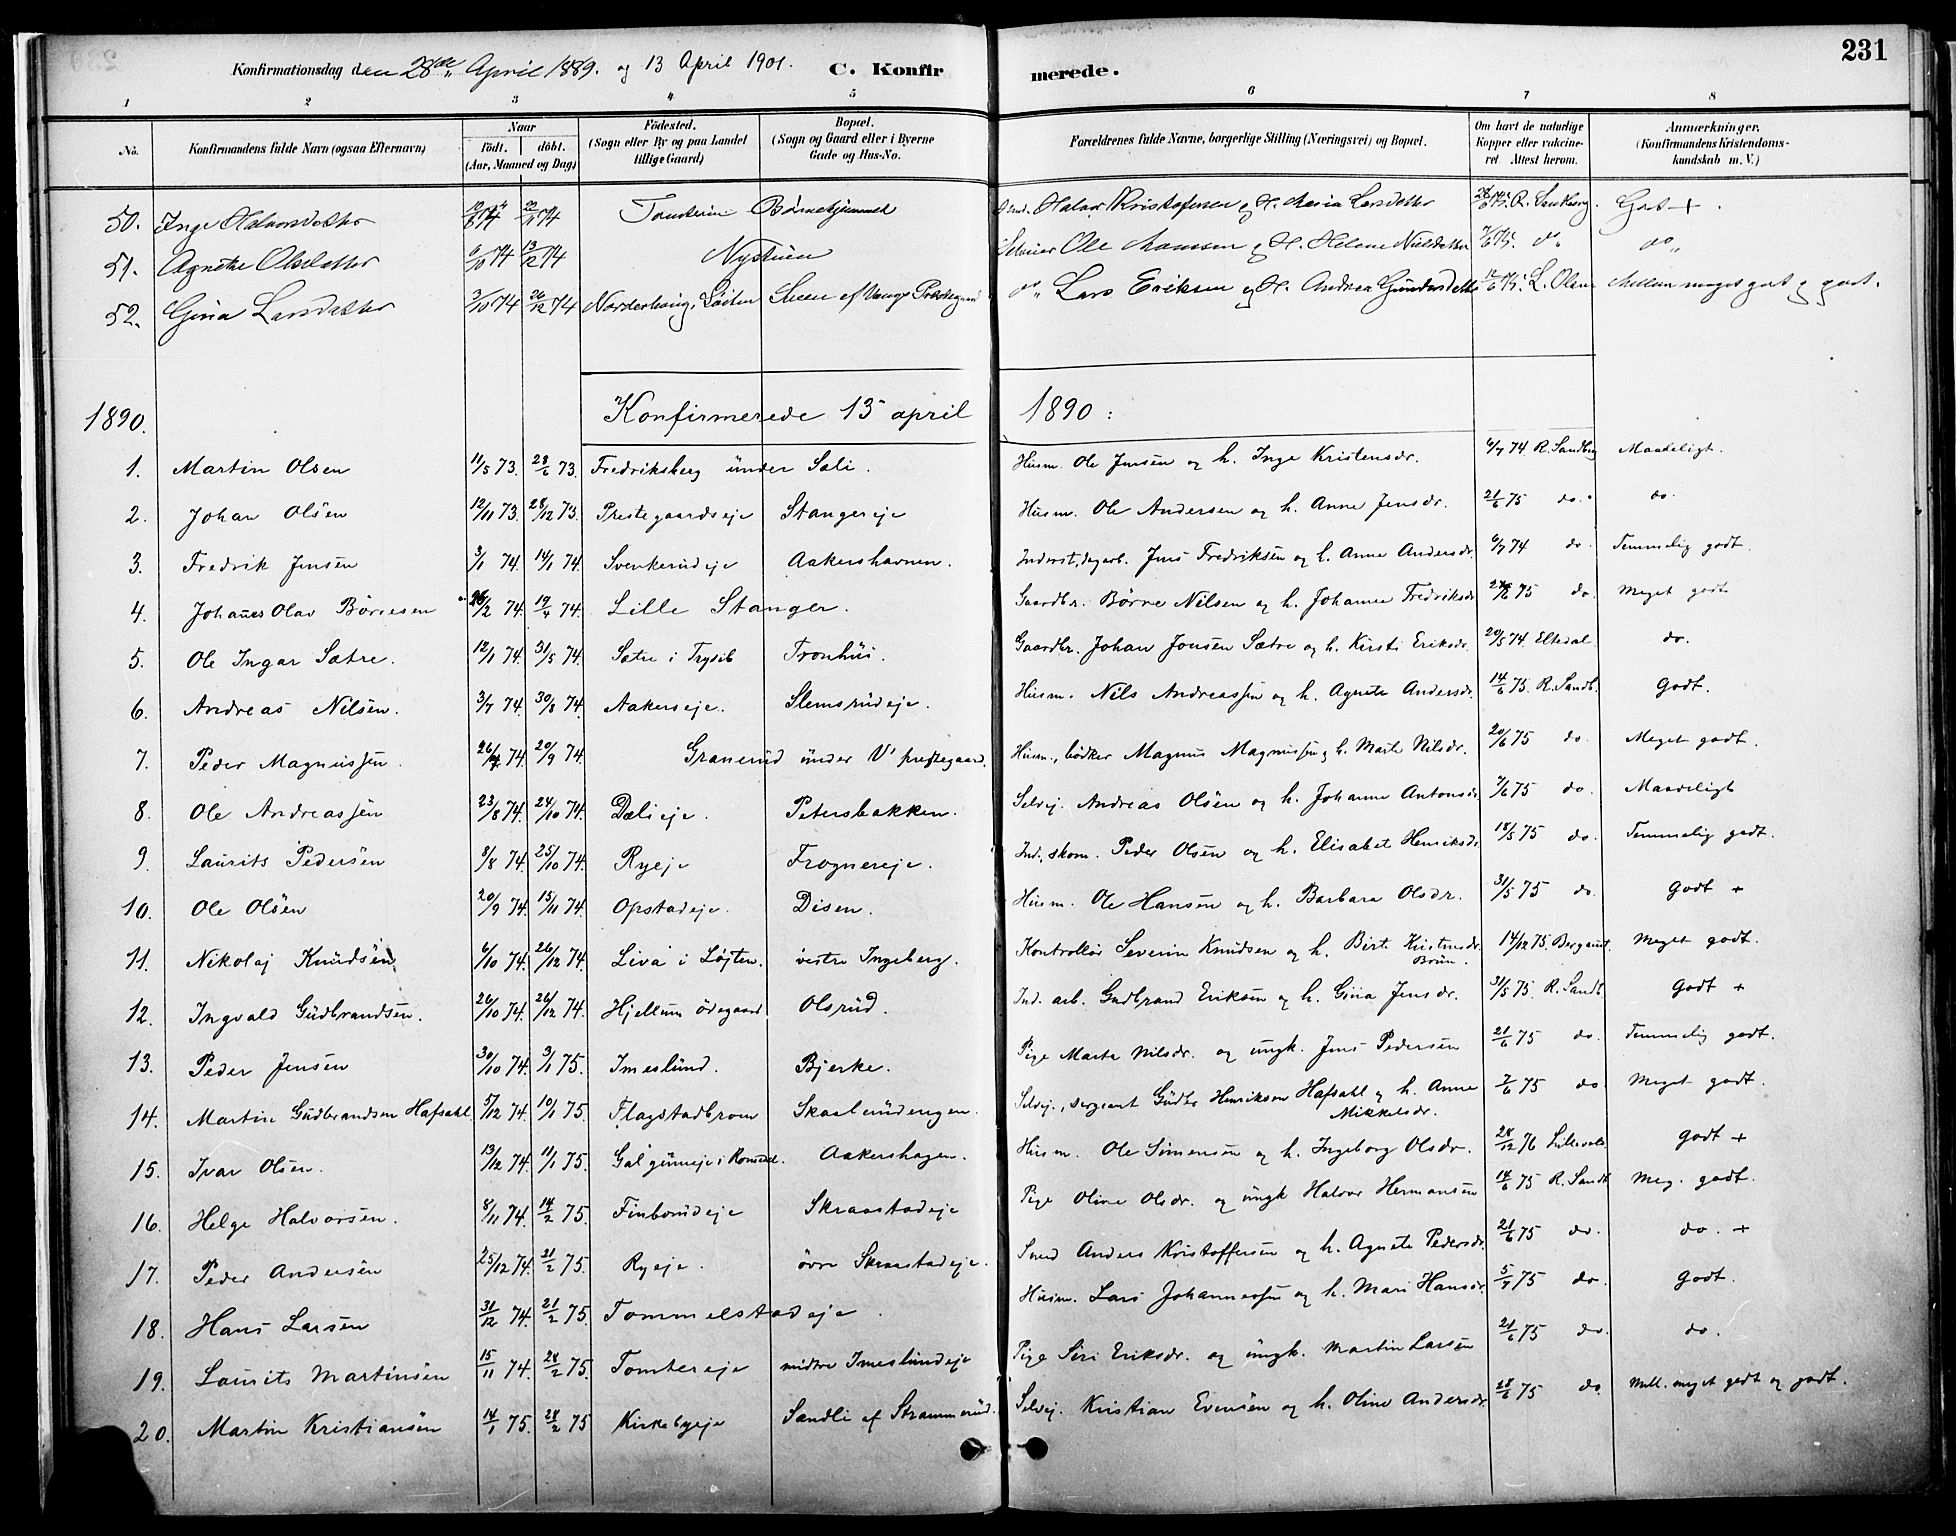 231
Konfirmationsdag den 28de April 1889. og 13 April 1901. C. Konfirmerede.
1 2 3 4 5 6 7 8
No. Konfirmandens fulde Navn (ogsaa Efternavn) Naar født. døbt. (Aar, Maaned og Dag) Fødested. (Sogn eller By og paa Landet tillige Gaard) Bopæl. (Sogn og Gaard eller i Byerne Gade og Hus-No. Forældrenes fulde Navne, borgerlige Stilling (Næringsvei) og Bopæl. Om havt de naturlige Kopper eller vakcineret Attest herom. Anmærkninger. (Konfirmandens Kristendomskundskab m. V.)
50. Inge Halvorsdatter 22/1 74 Børnehjemmet Halvor Kristofersen og H. Maria Larsdatter Godt +.
51. Agnethe Olsdatter 6/10 74 13/12 74 Nystuen Ole Hansen og H. Helene Nielsdatter 7/6 75. do. do.
52. Gina Larsdatter 2/10 74 26/12 74 Norderhaug, Løiten Steen af Vangs Præstegaard do. Lars Eriksen og H. Andrea Gundersdatter 12/6 75. L. Olsen Mellem meget godt og godt.
1890. Konfirmerede 13 april 1890:
1. Martin Olsen 11/5 73. 28/6 73. Fredriksberg under Sali. Husm. Ole Jensen og h. Inge Kristensdr. 6/7 74. R. Sandberg Maadeligt.
2. Johan Olsen 12/11 73. 28/12 73. Prestegaardseje Stangereje Husm. Ole Andersen og h. Anne Jensdr. 21/6 75 do. do.
3. Fredrik Jensen 3/1 74. 14/1 74. Svenkerudeje Aakershavnen. Inderst, dagarb. Jens Fredriksen og h. Anne Andersdr. 6/7 74 do. Temmelig godt.
4. Johanes Olav Børresen 26/2 74. 19/4 74. Lille Stanger. Gaardbr. Børre Nilsen og h. Johanne Fredriksdr. 75 do. Meget godt
5. Ole Ingar Sætre. 12/1 74. 31/5 74. Sætre i Trysil Tronhus. Gaardbr. Johan Jonsen Sætre og h. Kirsti Eriksdr. 20/5 74. Eltedal do.
6. Andreas Nilsen. 3/7 74. 30/8 74. Aakerseje. Slemsrudeje. Husm. Nils Andreassen og h. Agnete Andersdr. 14/6 75. R. Sandb. Godt.
7. Peder Magnussen. 26/7 74. 20/9 74. Granerud under V' prestegaard. Husm., bødker Magnus Magnussen og h. Marte Nilsdr. 20/6 75 do. Meget godt.
8. Ole Andreassen 23/8 74. 24/10 74. Dælieje. Petersbakken. Selvej. Andreas Olsen og h. Johanne Antonsdr. 7/6 75 do. Maadeligt
9. Laurits Pedersen 8/8 74. 25/10 74. Ryeje Frognereje. Ind., skom. Peder Olsen og h. Elisabet Henriksdr. 18/5 75 do. Temmelig godt.
10. Ole Olsen 20/9 74. 15/11 74. Opstadeje. Disen. Husm. Ole Hansen og h. Barbara Olsdr. 31/5 75 do. Godt +
11. Nikolaj Knudsen 6/10 74. 26/12 74. Liva i Løjten. vestre Ingeberg. Kontrollør Severin Knudsen og h. Birte Kristensdr. Brun. 14/12 75. Meget godt.
12. Ingvald Gudbrandsen. 26/10 74. 26/12 74. Hjellum ødegaard Olsrud. Ind. arb. Gudbrand Eriksen og h. Gina Jensdr. 31/5 75. R. Sandb. Godt +
13. Peder Jensen 30/10 74. 3/1 75. Imeslund. Bjerke. Pige Marte Nilsdr. og ungk. Jens Pedersen 21/6 75 do. Temmelig godt.
14. Martin Gudbrandsen Hafsahl 5/12 74. 10/1 75. Flagstadbroen Skaalerudengen. Selvej., sergeant Gudbr. Henriksen Hafsahl og h. Anne Mikkelsdr. 7/6 75 do Meget godt.
15. Ivar Olsen. 13/12 74. 11/1 75. Aakershagen. Husm. Ole Simensen og h. Ingeborg Olsdr. 28/12 76 Godt +
16. Helge Halvorsen. 8/11 74. 14/2 75. Finborudeje Skraastadeje Pige Oline Olsdr. og ungk Halvor Hermansen 14/6 75 R. Sandb Meg. godt.
17. Peder Andersen 25/12 74. 21/2 75. Ryeje. øvre Skraastadeje. Smed Anders Kristoffersen og h. Agnete Pedersdr. 21/6 75 do. do. +
18. Hans Larsen 31/12 74. 21/2 75. Tommelstadeje. Husm. Lars Johannessen og h. Mari Hansdr. 5/7 75 do. Godt.
19. Laurits Martinsen 15/11 74. 28/2 75. Tomtereje midtre Imeslundeje Pige Siri Eriksdr. og ungk. Martin Larsen 21/6 75 do. do.
20. Martin Kristiansen 14/1 75. 28/2 75 Kirkebyeje Sandli af Strammerud. Selvej. Kristian Evensen og h. Oline Andersdr. 28/6 75 do. Mell. meget godt og godt.